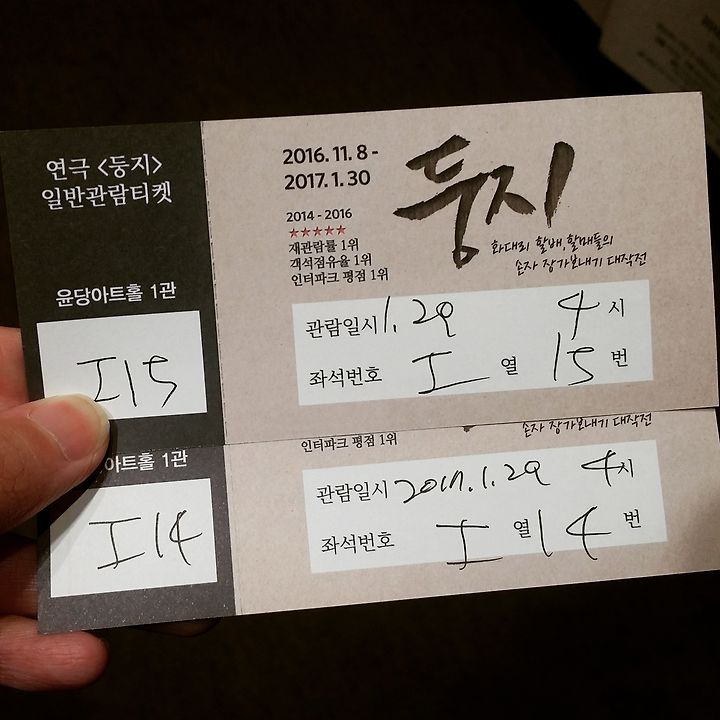 연극 <둥지>
일반관람티켓
윤당아트홀 1관
I 15
2016. 11. 8 -
2017. 1. 30
2014 - 2016
★★★★★
재관람률 1위
객석점유율 1위
인터파크 평점 1위
둥지
화대리 할배, 할매들의
손자 장가보내기 대작전
관람일시 1. 29 4 시
좌석번호 I 열 15 번
아트홀 1관
I 14
인터파크 평점 1위
손자 장가보내기 대작전
관람일시 2017. 1. 29 4 시
좌석번호 I 열 14 번